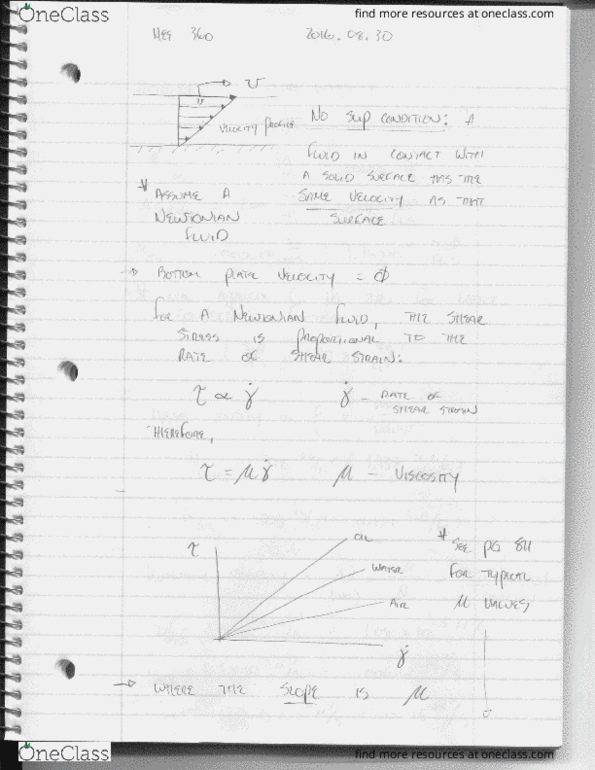 OneClass
find more resources at oneclass.com
MEE 360
2016.08.30
U
VELOCITY PROFILE
NO SLIP CONDITION: A
FLUID IN CONTACT WITH
A SOLID SURFACE HAS THE
SAME VELOCITY AS THAT
SURFACE
* ASSUME A
NEWTONIAN
FLUID
→ BOTTOM PLATE VELOCITY = ϕ
FOR A NEWTONIAN FLUID, THE SHEAR
STRESS IS PROPORTIONAL TO THE
RATE OF SHEAR STRAIN:
τ ∝ γ̇
γ̇ – RATE OF
SHEAR STRAIN
THEREFORE,
τ = μγ̇
μ – VISCOSITY
τ
OIL
WATER
AIR
γ̇
* SEE PG 811
FOR TYPICAL
μ VALUES
→ WHERE THE SLOPE IS μ
OneClass
find more resources at oneclass.com